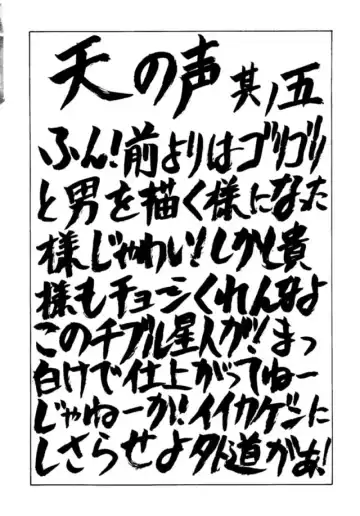 天の声 其ノ五
ふん!前よりはゴリゴリ
と男を描く様になった
様じゃわい!しかし貴
様もチョーシくれんなよ
このチブル星人が!まっ
白けで仕上がってねー
じゃねーか!!イイカゲンに
しさらせよ外道がぁ!